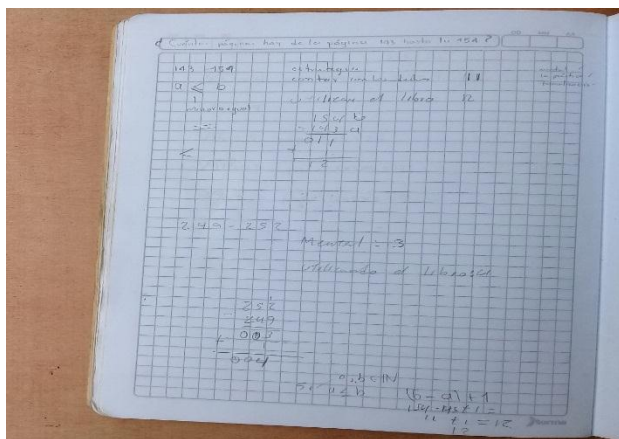 ¿Cuántas páginas hay de la página 143 hasta la 154?
143 154 estrategia
contar con los dedos 11
a < b
utilizar el libro 12
154 b
- 143 a
011
+ 1
12
<
249 - 252
Mental = 3
utilizando el libro = 4
252
- 249
003
+ 1
004
a, b ∈ IN
Si a ≤ b (b - a) + 1
154 - 143 + 1 =
11 + 1 = 12
12